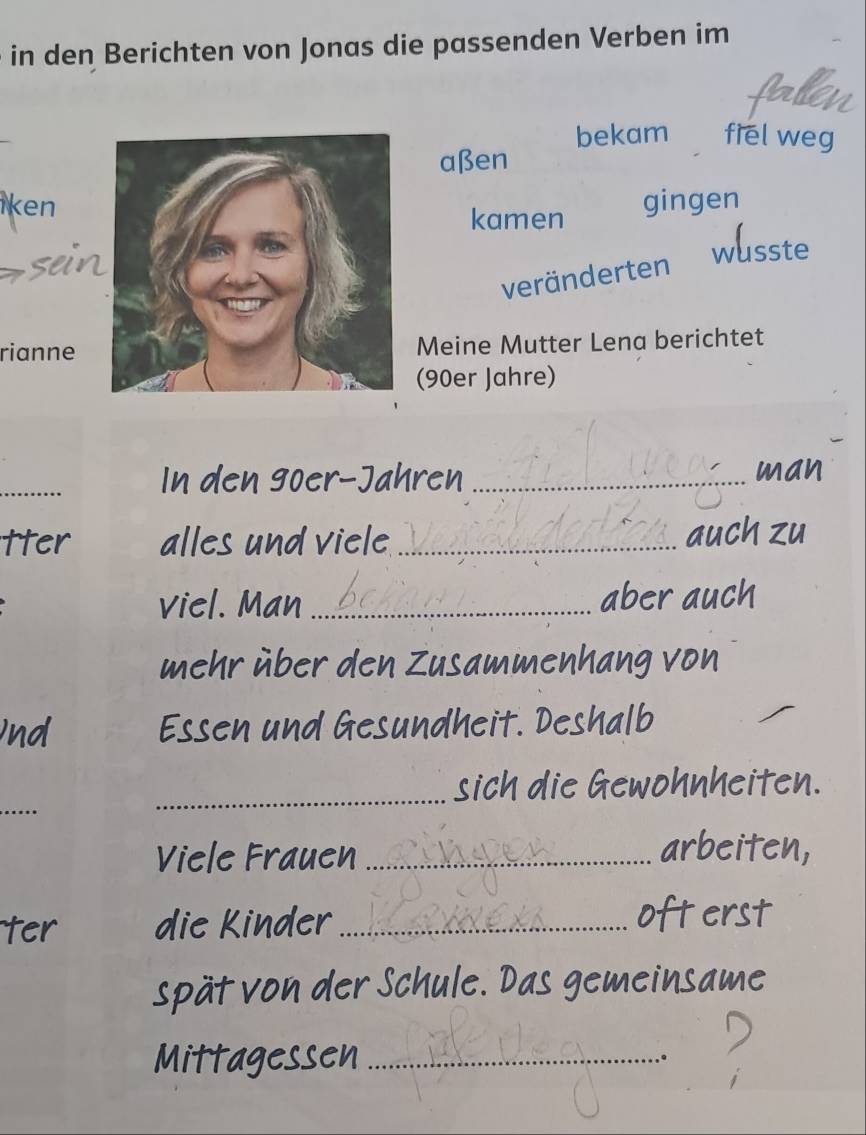 in den Berichten von Jonas die passenden Verben im
fallen
bekam fiel weg
aßen
ken
kamen gingen
sein
wusste
veränderten
rianne
Meine Mutter Lena berichtet
(90er Jahre)
In den 90er-Jahren fiel weg man
tter alles und viele veränderten auch zu
viel. Man bekam aber auch
mehr über den Zusammenhang von
und Essen und Gesundheit. Deshalb
sich die Gewohnheiten.
Viele Frauen gingen arbeiten,
ter die Kinder kamen oft erst
spät von der Schule. Das gemeinsame
Mittagessen fiel weg. ?